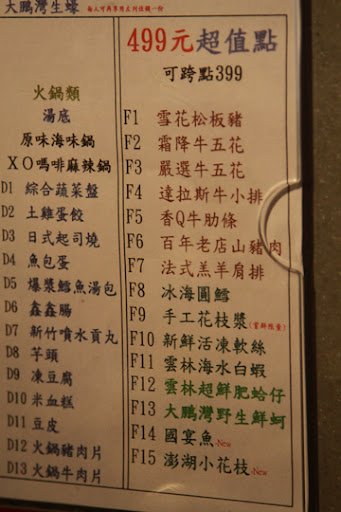 大鵬灣生蠔 每人可再享用左列任橫一份
火鍋類
湯底
原味海味鍋
XO嗎啡麻辣鍋
D1 綜合蔬菜盤
D2 土雞蛋餃
D3 日式起司燒
D4 魚包蛋
D5 爆漿鱈魚湯包
D6 鑫鑫腸
D7 新竹噴水貢丸
D8 芋頭
D9 凍豆腐
D10 米血糕
D11 豆皮
D12 火鍋豬肉片
D13 火鍋牛肉片
499元超值點
可跨點399
F1 雪花松板豬
F2 霜降牛五花
F3 嚴選牛五花
F4 達拉斯牛小排
F5 香Q牛肋條
F6 百年老店山豬肉
F7 法式羔羊肩排
F8 冰海圓鱈
F9 手工花枝漿(當鮮限量)
F10 新鮮活凍軟絲
F11 雲林海水白蝦
F12 雲林超鮮肥蛤仔
F13 大鵬灣野生鮮蚵
F14 國宴魚-New
F15 澎湖小花枝-New